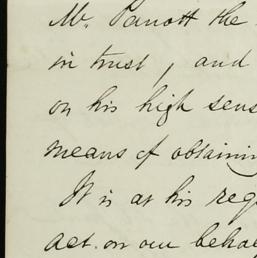 Mr. Parrott the
in trust, and
on his high sens
means of obtainin
It is at his req
act. on our behal